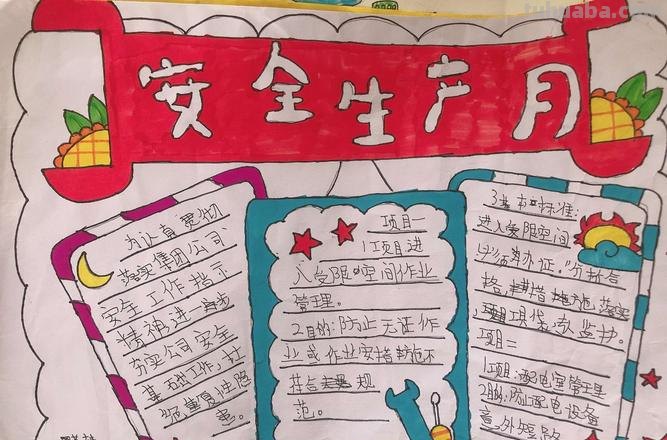 tuhuaba.com
安全生产月
为认真贯彻
落实集团公司
安全工作指示
精神进一步
夯实公司安全
基础工作,杜
绝重复性隐
患。
项目一
1项目进
入受限空间作业
管理。
2目的:防止无证作
业或作业安措措施不
符合规
范。
3基本标准:
进入受限空间
必须办证。分析合
格,措施落实
现伏款监护。
项目二
1项目:配电室管理
2目的:防止配电设备
意外短路